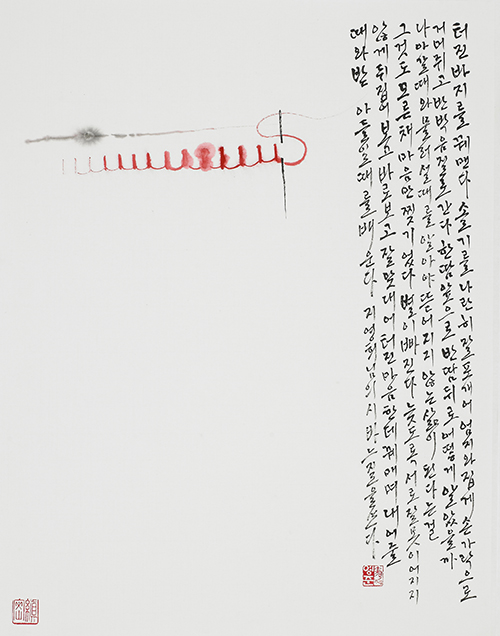 터진 바지를 꿰맨다 솔기를 나란히 잘 포개어 엄지와 집게손가락으로
거머쥐고 반박음질로 간다 한땀 앞으로 반땀 뒤로 어떻게 알았을까
나아갈 때와 물러설 때를 알아야 뜯어지지 않는 삶이 된다는 걸
그것도 모른 채 마음만 찢기었다 별이 빠진다 늦도록 서로 잘못 이어지지
않게 뒤집어보고 바로보고 잘 맞대어 터진 마음 한데 꿰매며 내어줄
때와 받아들일 때를 배운다 지영희님의 시 바느질을 쓰다